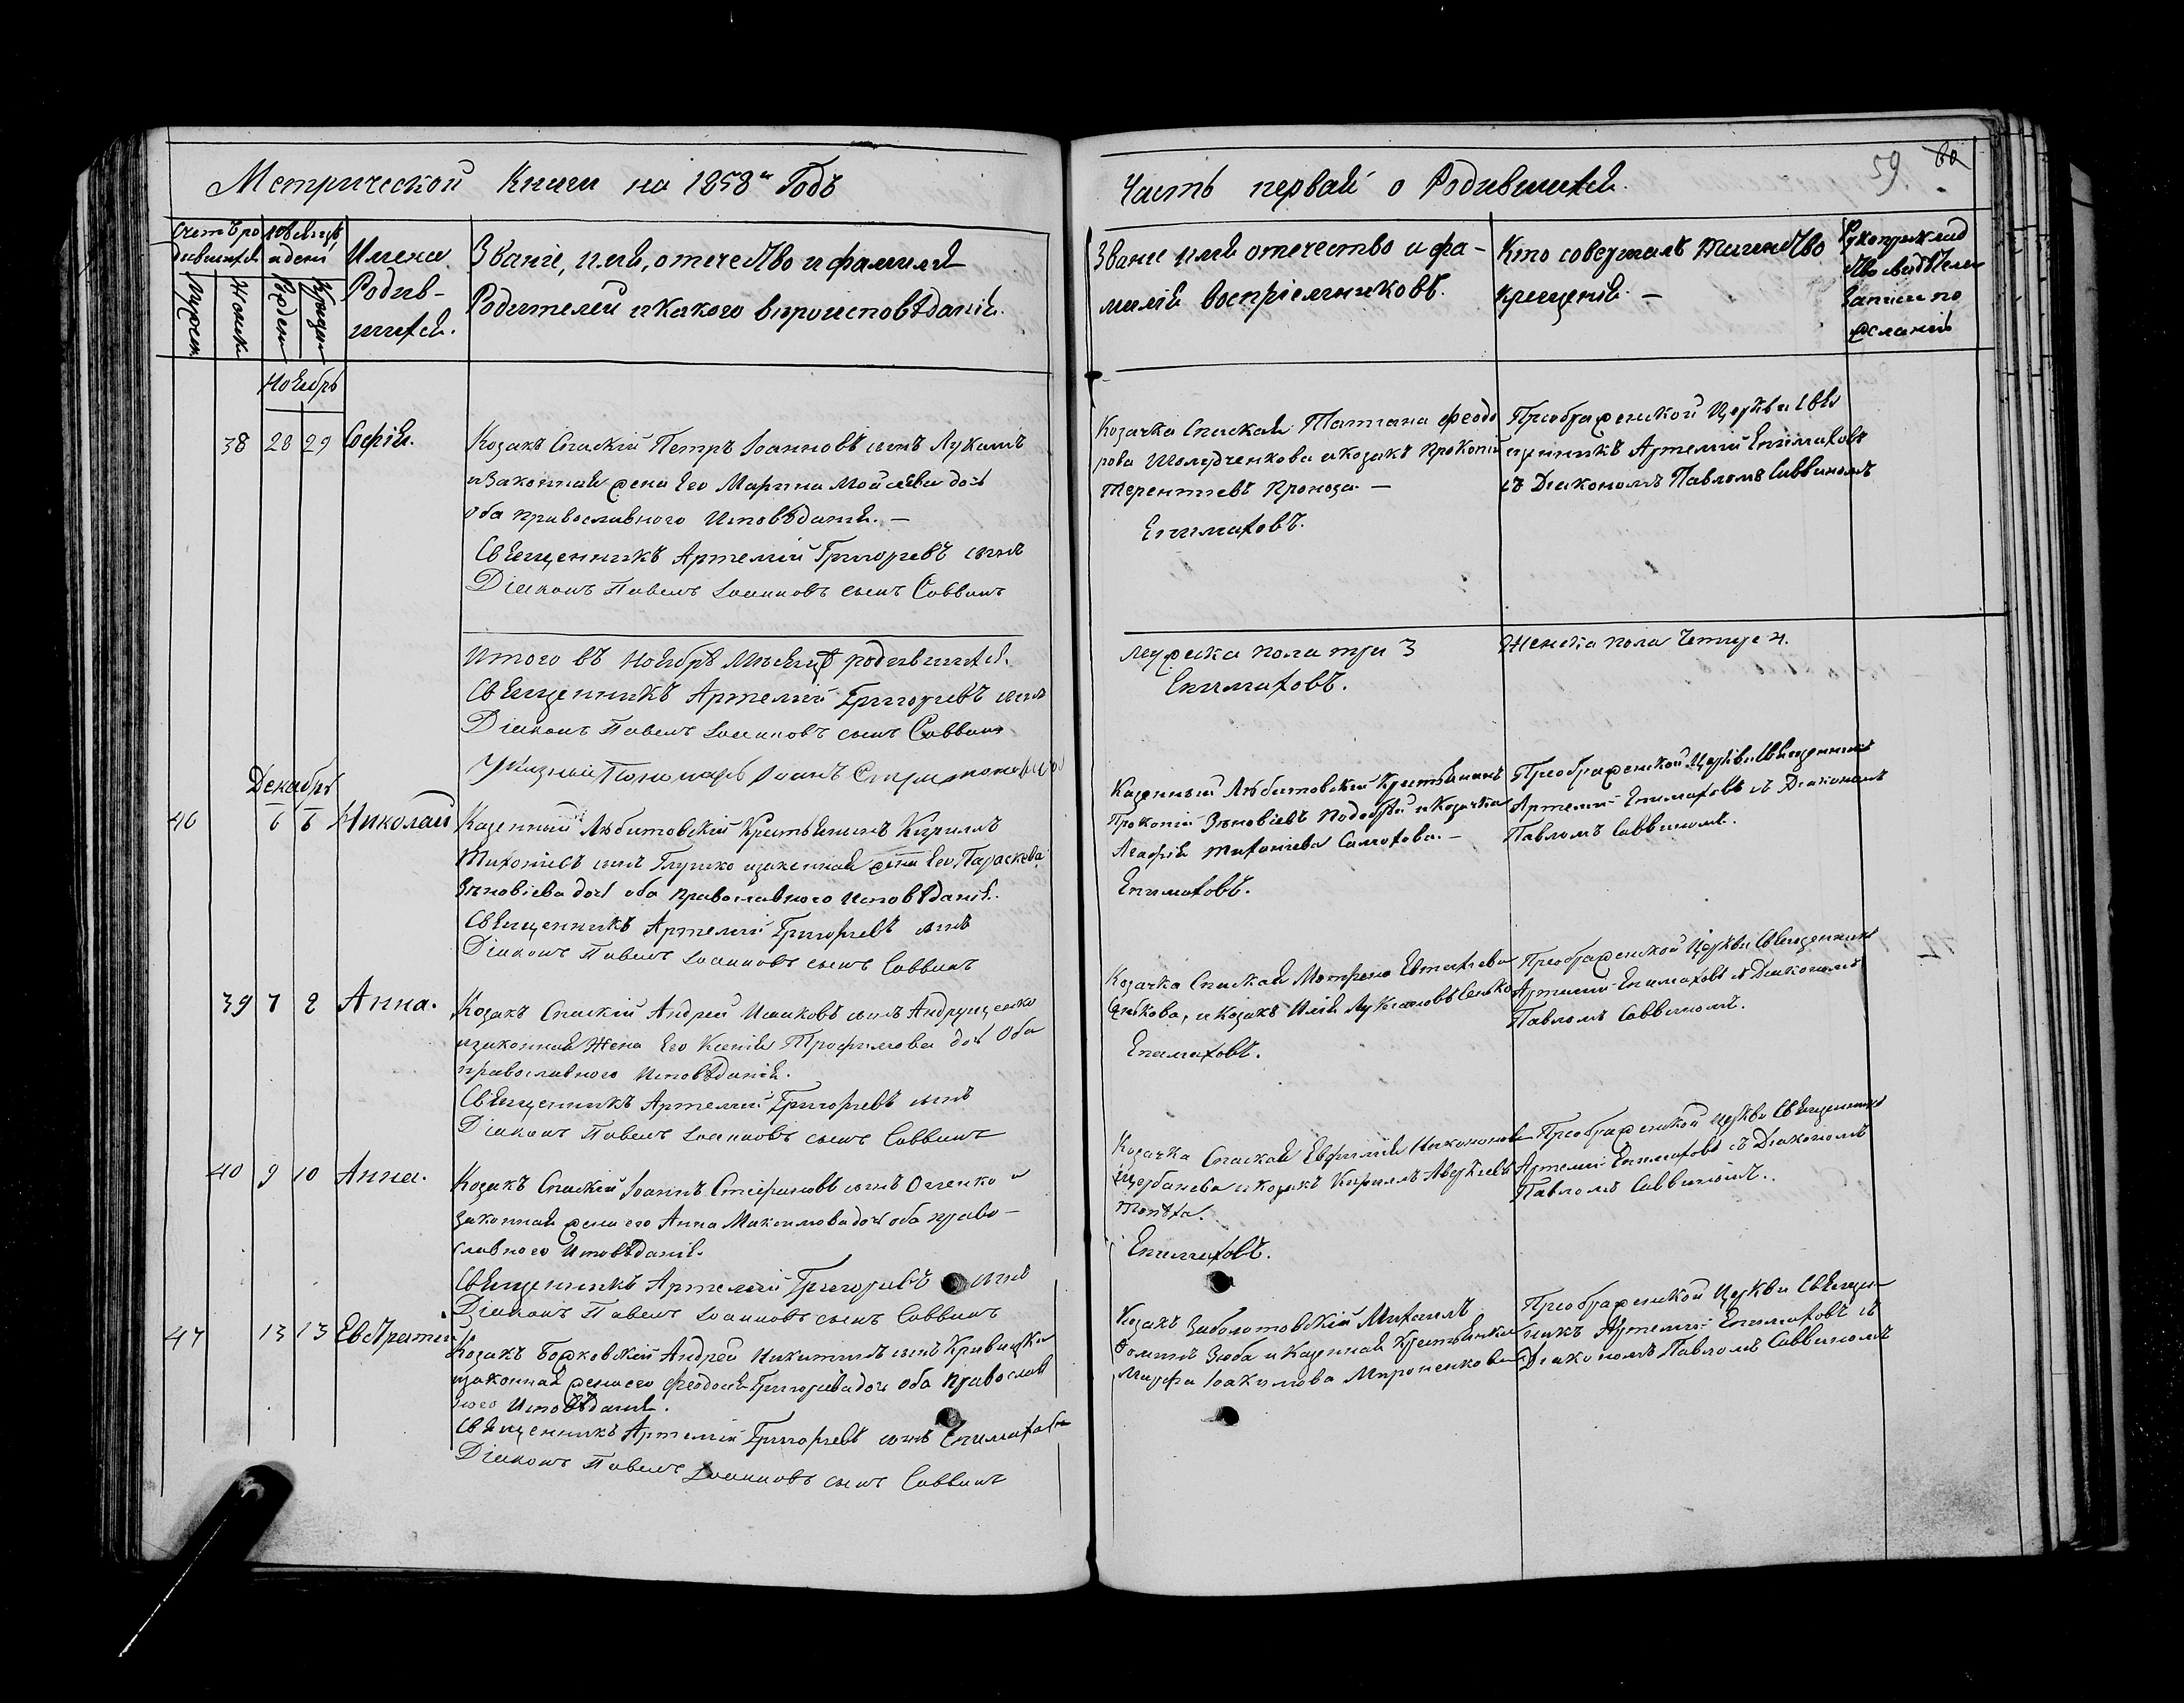 Метрической Книги на 1858й Годъ
Счетъ ро
дившихся
Мужеск
Женск
Мѣсяцъ
и день
Рожден
Крещен
Имена
Родив-
шихся.
Званіе, имя, отечество и фамилія
Родителей и какого вѣроисповѣданія.
Ноябрь
38 28 29 Софія.
Козакъ Спаскій Петръ Іоанновъ сынъ
и законная жена его Марина Мойсеева дочь
оба православного Исповѣданія. —
Священникъ Артемій Григорьевъ сынъ
Діаконъ Павелъ Іоанновъ сынъ Саввинъ
Итого въ Ноябрѣ Мѣсяцѣ родившихся.
Священникъ Артемій Григорьевъ сынъ
Діаконъ Павелъ Іоанновъ сынъ Саввинъ
Указный Пономарь Іоаннъ
Декабрь
46 6 6 Николай
Казенный Любитовскій Крестьянинъ Кириллъ
Тихоніевъ сынъ Глушко и законная жена его Параскева
Зѣновіева дочь оба православного Исповѣданія.
Священникъ Артемій Григорьевъ сынъ
Діаконъ Павелъ Іоанновъ сынъ Саввинъ
39 7 8 Анна.
Козакъ Спаскій Андрей Исаковъ сынъ Андрущенко
и законная Жена его Ксенія Трофимова дочь оба
православного Исповѣданія.
Священникъ Артемій Григорьевъ сынъ
Діаконъ Павелъ Іоанновъ сынъ Саввинъ
40 9 10 Анна.
Козакъ Спаскій Іоаннъ Стефановъ сынъ и
законная жена его Анна Максимова дочь оба право-
славного Исповѣданія.
Священникъ Артемій Григорьевъ сынъ
Діаконъ Павелъ Іоанновъ сынъ Саввинъ
47 13 13 Евстратій
Козакъ Божковскій Андрей Никитинъ сынъ Кривицкій
и законная жена его Феодосія Григорьева дочь оба православ
ного Исповѣданія.
Священникъ Артемій Григорьевъ сынъ Епимаховъ
Діаконъ Павелъ Іоанновъ сынъ Саввинъ
59 60
Часть первая о Родившихся.
Званіе имя отечество и фа-
милія воспріемниковъ.
Кто совершалъ таинство
крещенія. —
Рукоприклад
ство свидѣтелей
записи по
желанію
Козачка Спаская Татіана Феодо
рова Шолудченкова и козакъ Прокопій
Терентіевъ Проноза —
Епимаховъ.
Преображенской Церкви Свя
щенникъ Артемій Епимаховъ
съ Діакономъ Павломъ Саввиномъ
Мужеска пола три 3
Епимаховъ.
Женска пола Четыре 4.
Казенный Любитовскій Крестьянинъ
Прокопій Зѣновіевъ и Козачка
Агафія Тихоніева
Епимаховъ.
Преображенской Церкви Священникъ
Артемій Епимаховъ съ Діакономъ
Павломъ Саввиномъ.
Козачка Спаская Матрона Евстафіева
и Козакъ Илія Лукіановъ
Епимаховъ.
Преображенской Церкви Священникъ
Артемій Епимаховъ съ Діакономъ
Павломъ Саввиномъ.
Козачка Спаская Евфимія Никонова
Щербанева и козакъ Кириллъ Авдѣевъ
Епимаховъ.
Преображенской Церкви Священникъ
Артемій Епимаховъ съ Діакономъ
Павломъ Саввиномъ.
Козакъ Заболотовскій Михаилъ
Фоминъ Зюба и Казенная Крестьянка
Марфа Іоакимова Мироненкова
Преображенской Церкви Священ
никъ Артемій Епимаховъ съ
Діакономъ Павломъ Саввиномъ